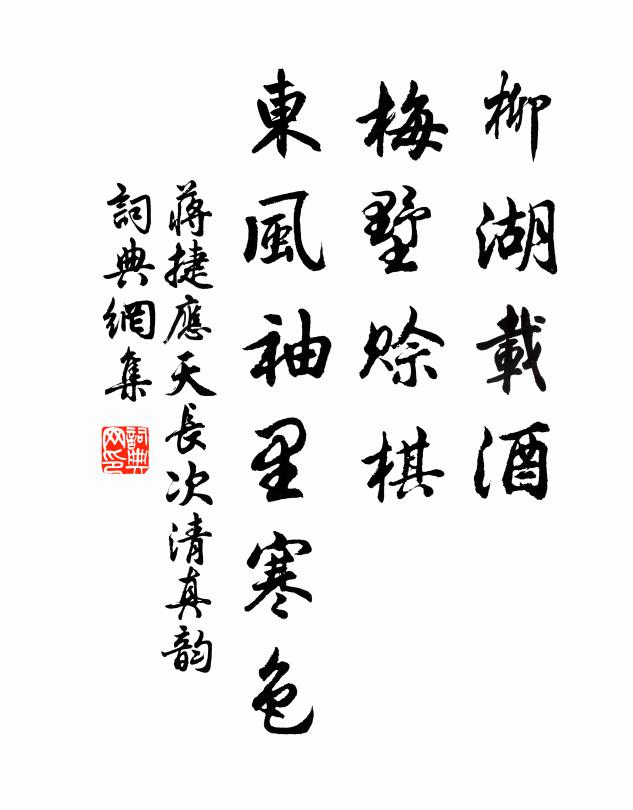 柳湖載酒
梅墅賒棋
東風袖里寒色
蔣捷應天長次清真韵
詞典網集
詞典網印